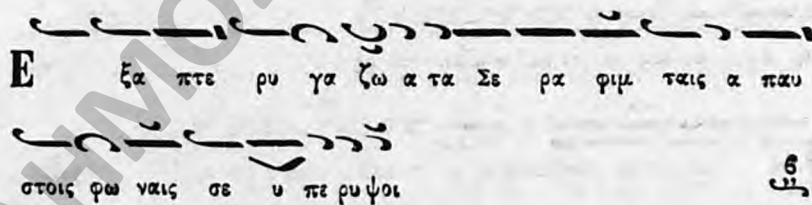 Ε ξα πτε ρυ γα ζω α τα Σε ρα φιμ ταις α παυ
στοις φω ναις σε υ πε ρυ ψοι